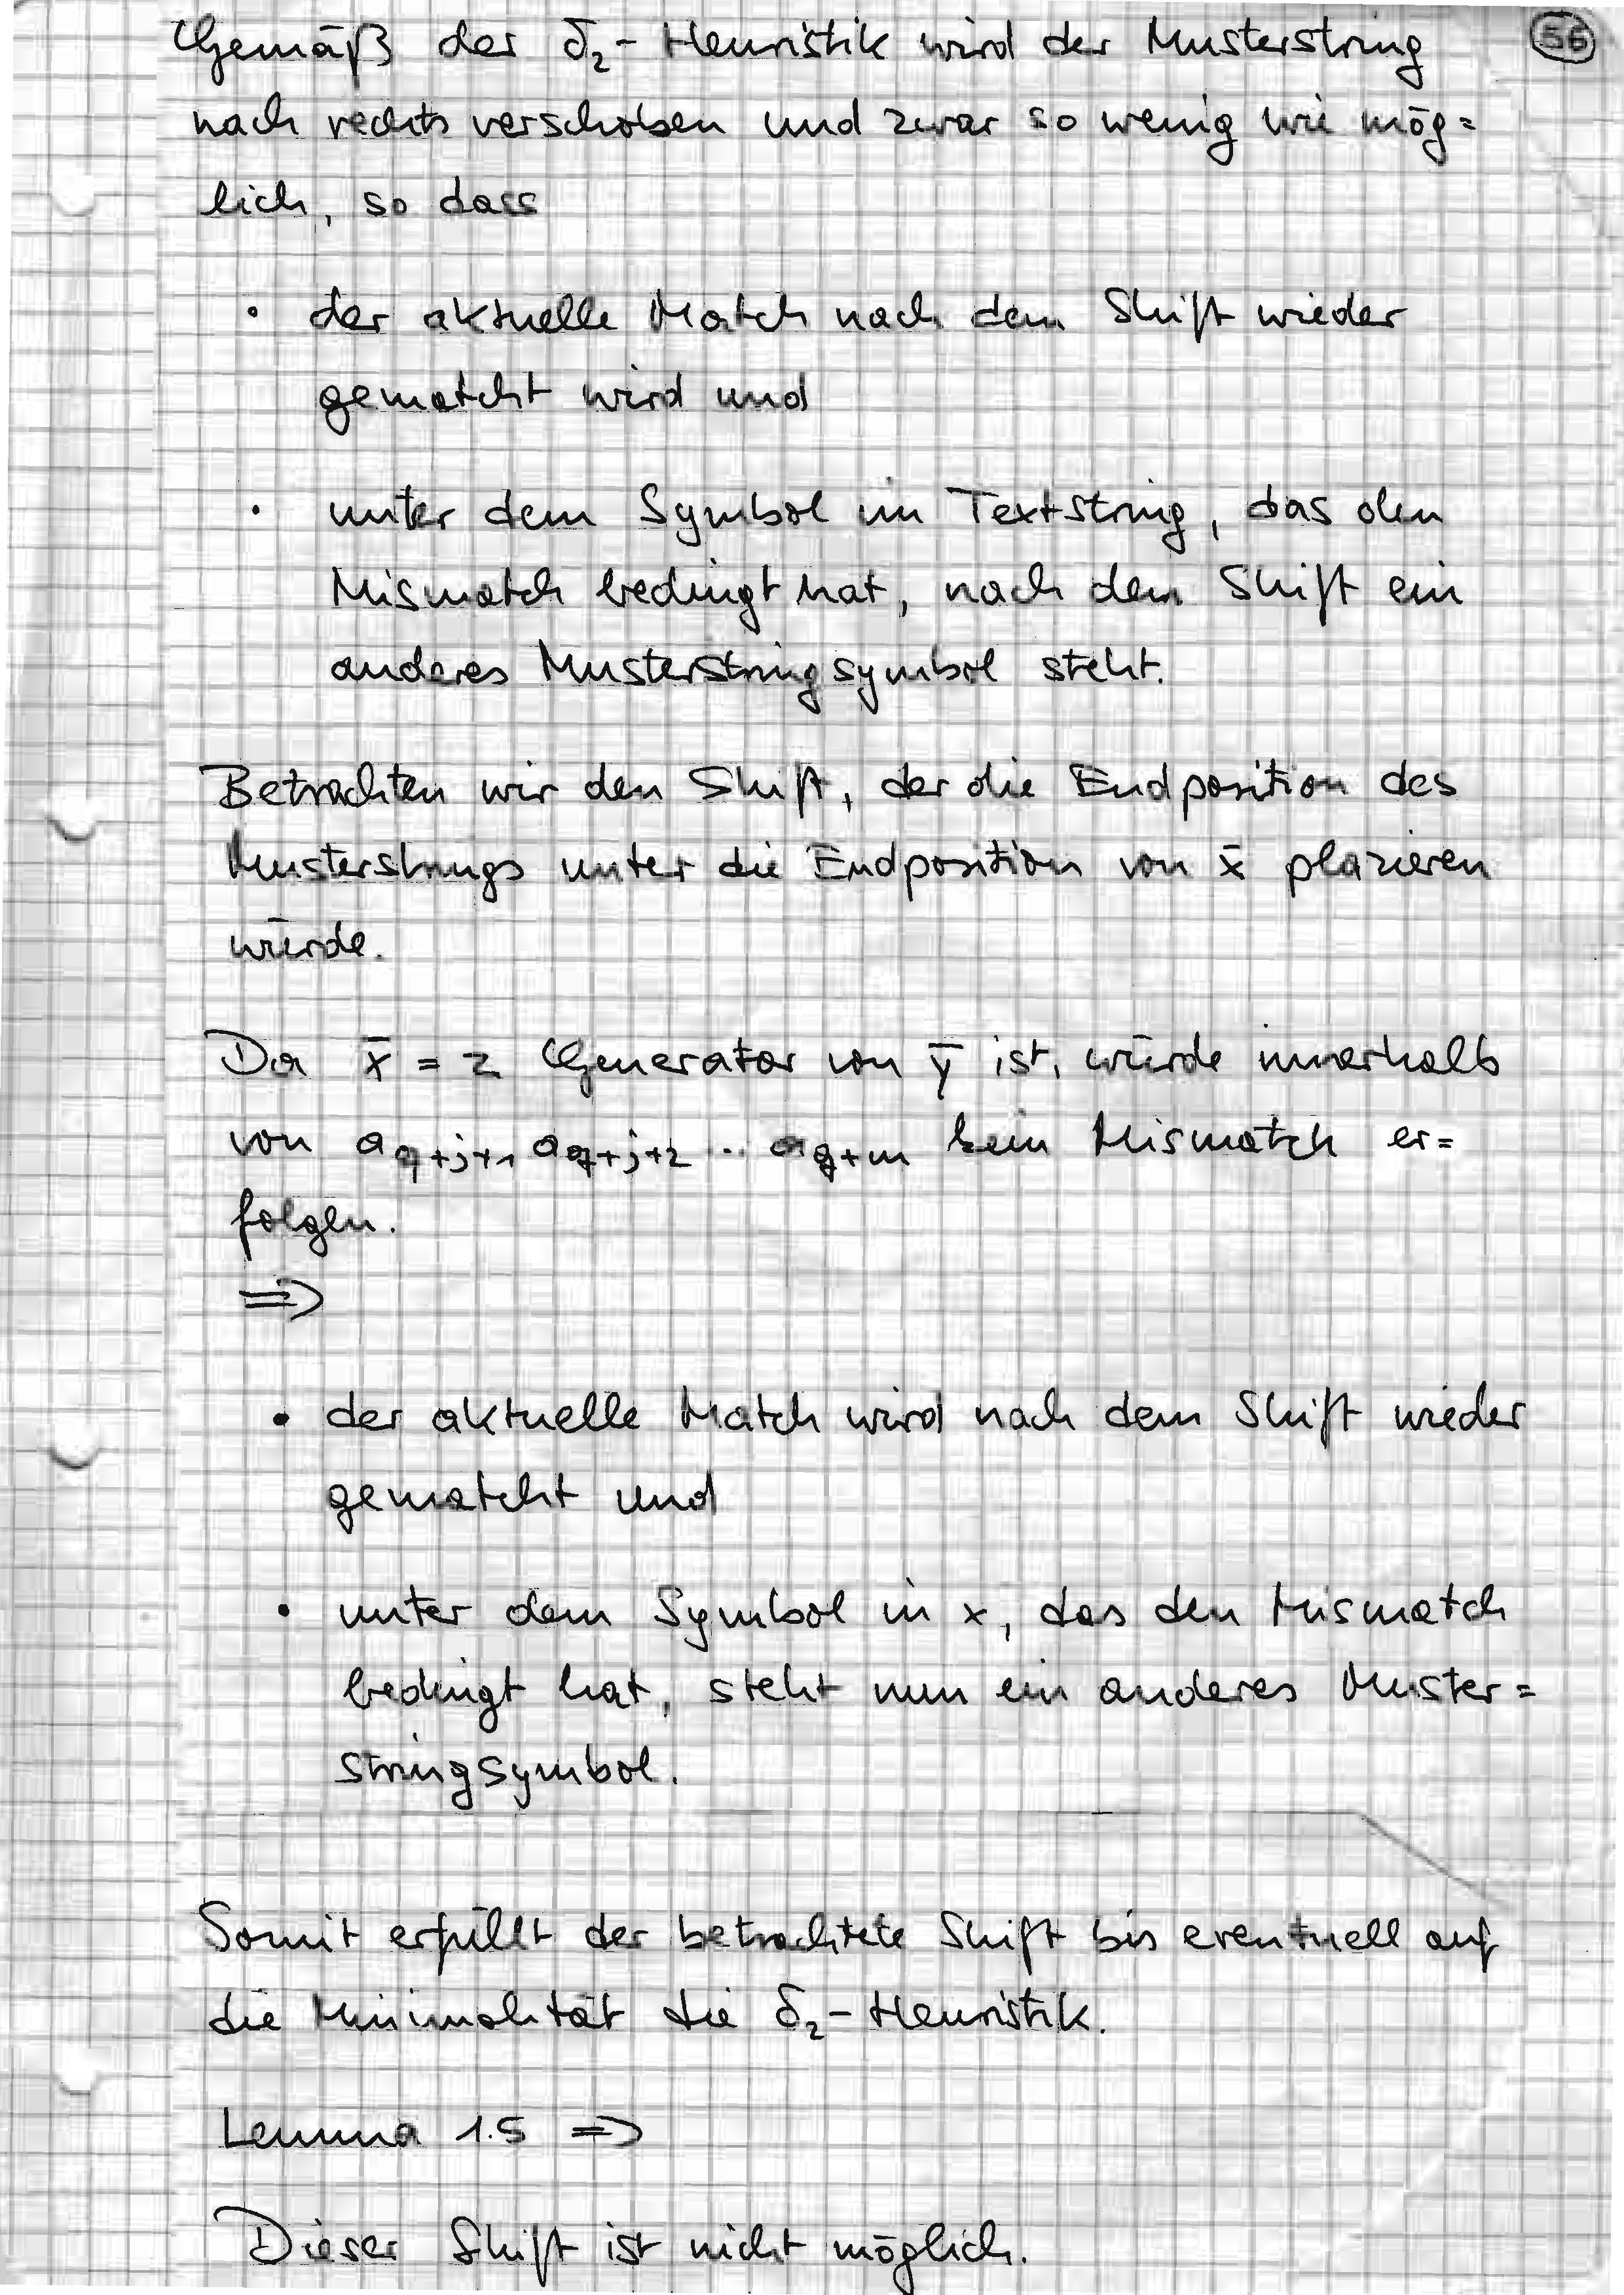 56
Gemäß der δ₂-Heuristik wird der Musterstring
nach rechts verschoben und zwar so wenig wie mög=
lich, so dass
• der aktuelle Match nach dem Shift wieder
gematcht wird und
• unter dem Symbol im Textstring, das den
Mismatch bedingt hat, nach dem Shift ein
anderes Musterstringsymbol steht.
Betrachten wir den Shift, der die Endposition des
Musterstrings unter die Endposition von x̄ plazieren
würde.
Da x̄ = z Generator von ȳ ist, würde innerhalb
von a_{q+j+1} a_{q+j+2} .. a_{q+m} kein Mismatch er=
folgen.
⇒
• der aktuelle Match wird nach dem Shift wieder
gematcht und
• unter dem Symbol in x, das den Mismatch
bedingt hat, steht nun ein anderes Muster=
stringsymbol.
Somit erfüllt der betrachtete Shift bis eventuell auf
die Minimalität die δ₂-Heuristik.
Lemma 1.5 ⇒
Dieser Shift ist nicht möglich.